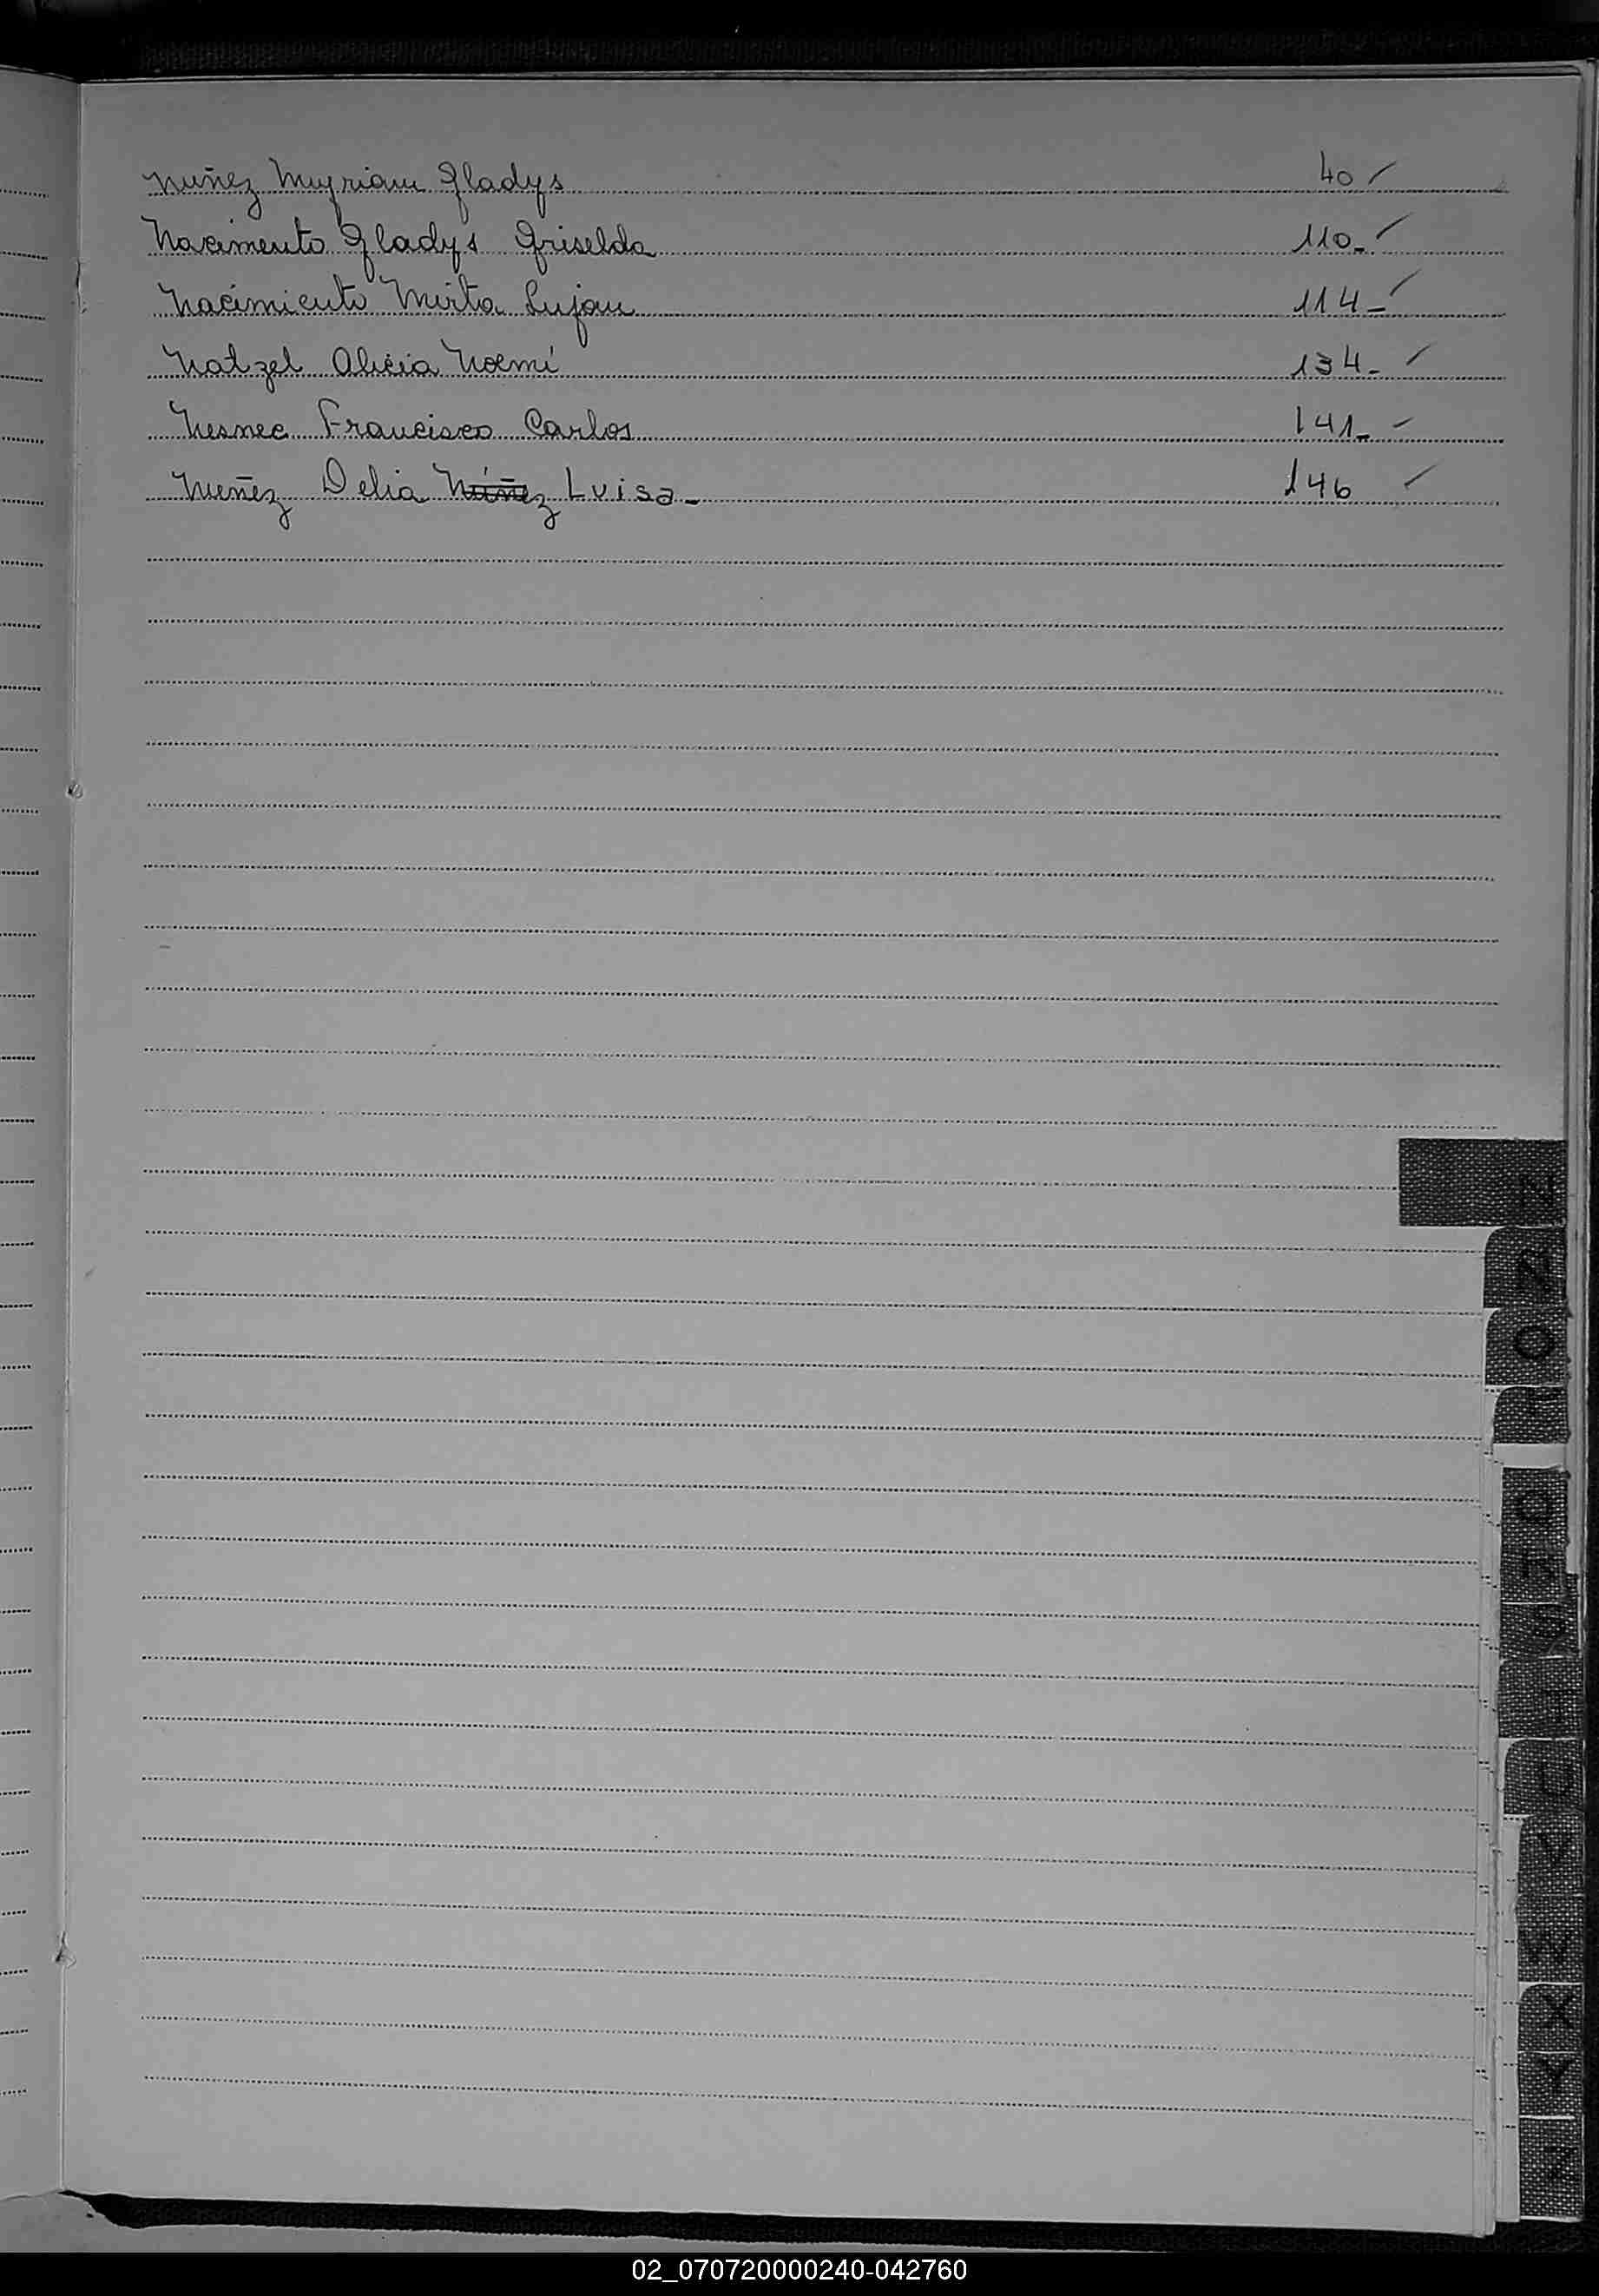 Nuñez Myriam Gladys 40
Nacimento Gladys Griselda 110-
Nacimiento Mirta Lujan 114-
Natzel Alicia Noemí 134-
Nesnec Francisco Carlos 141-
Nuñez Delia Núñez Luisa- 146
N
N
O
Q
R
S
T
U
V
W
X
Y
Z
02_070720000240-042760